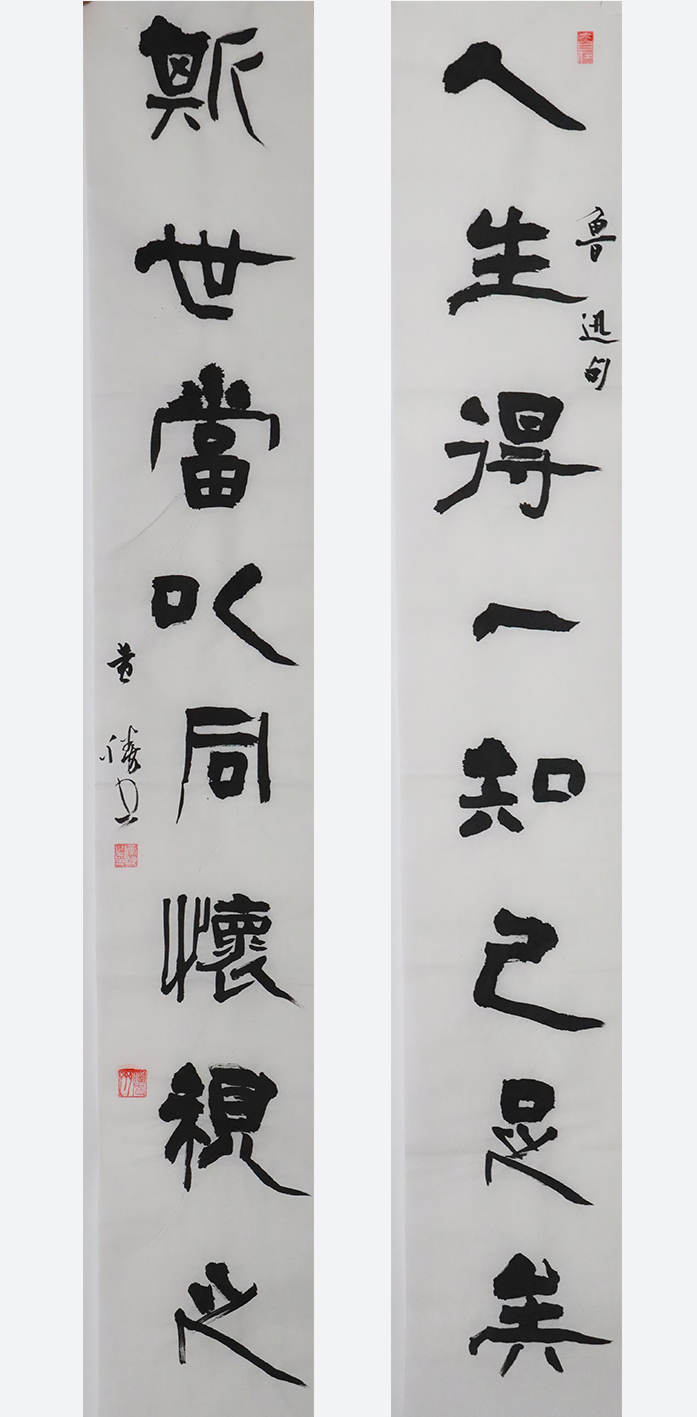 人生得一知己足矣
魯迅句
斯世當以同懷視之
黄勝書